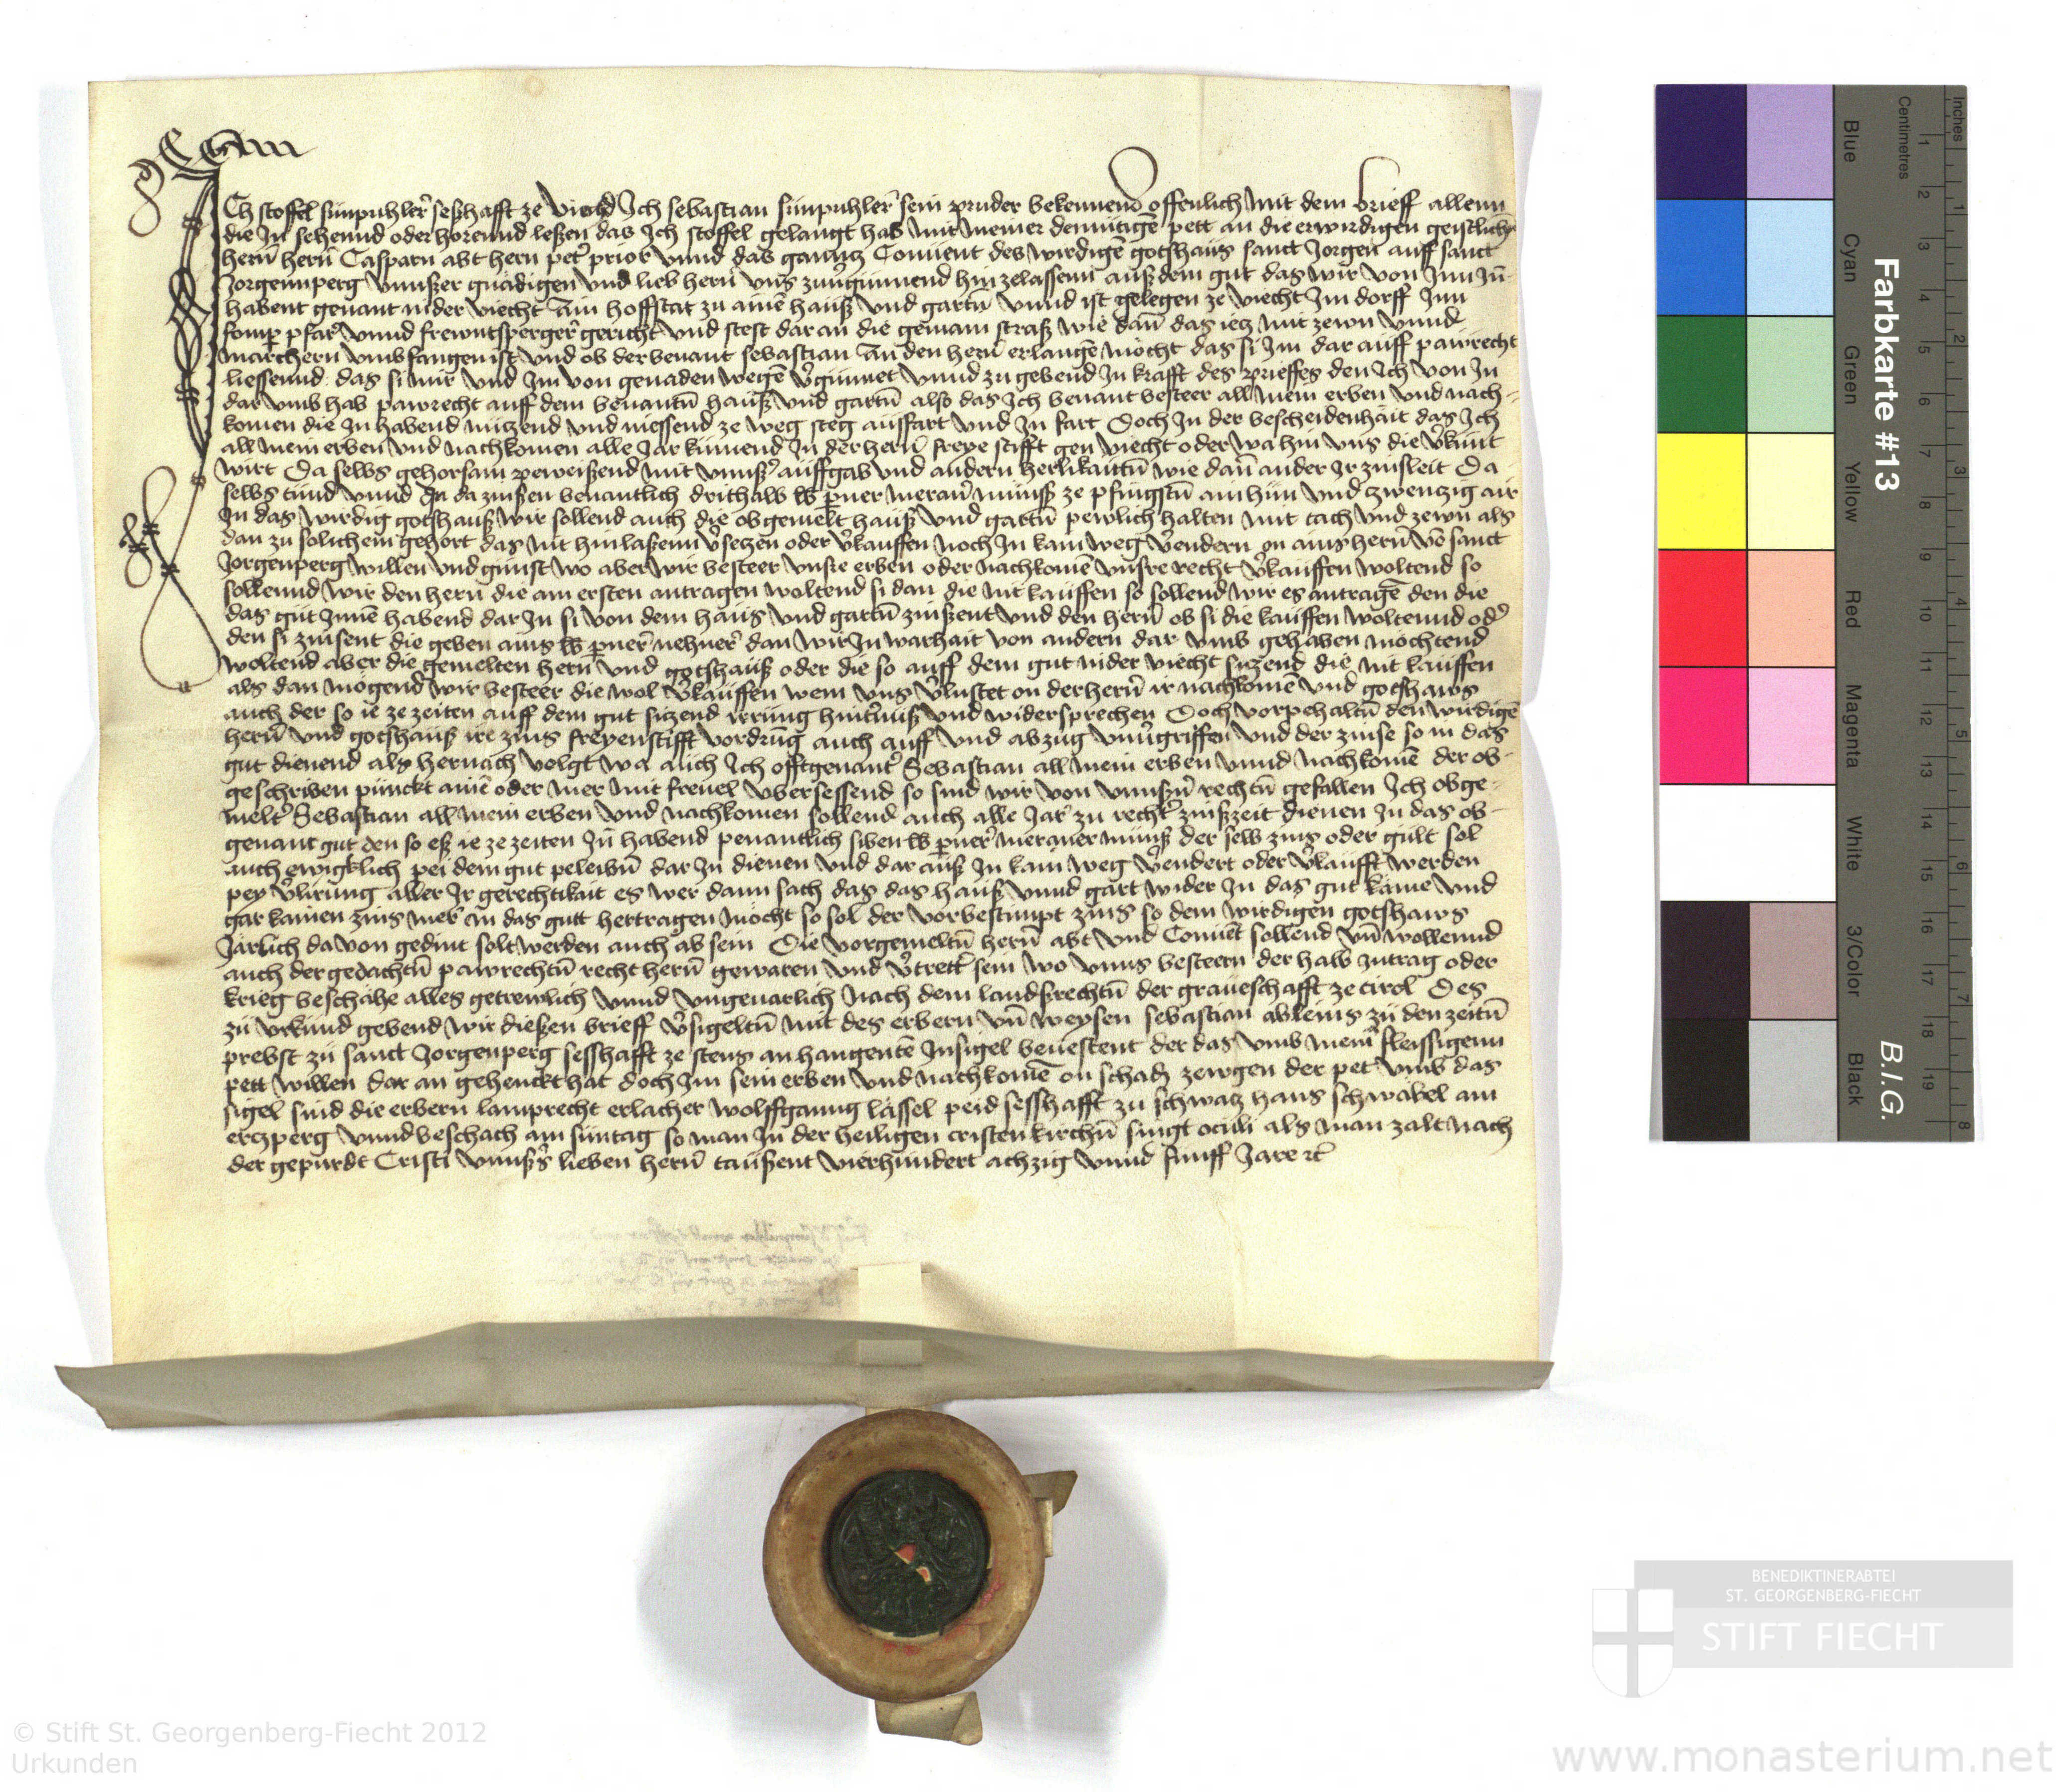 ICh stoffel sunpuhler seßhafft ze Viechd Ich sebastian sunpuhler sein pruder bekennend offenlich mit dem brieff allenn
die In sehennd oder horennd leßen das Ich stoffel gelangt hab mit meiner demutigē pett an die erwirdigen geistlichn̄
hern̄ hern̄ Casparn abt hern pet' prior vnnd das ganntz Conuent des wirdigē gotshaus sanct Jorgen auff sanct
Jorgennperg vnnßzer gnadigen vnd lieb hern̄ vns zuu'gunnend hin zelassenn auß dem gut das wir von Inn In̄-
habent genant nider viecht Ain hoffstat zu ainē hauß vnd gartn̄ vnnd ist gelegen ze viecht Im dorff Inn
fomp pfar' vnnd frewntsperger gericht vnd stest dar an die gemain straß wie dan̄ das ietz mit zewn vnnd
marchern vmbfangen ist vnd ob der benant sebastian An den hern̄ erlangē mocht das si Im dar auff pawrecht
liessennd das si mir vnd Im von genaden wegē v'gunnet vnnd zu gebend In krafft des prieffes den Ich von In
dar vmb hab pawrecht auff dem benantn̄ hauß vnd gartn̄ also das Ich benant besteer all mein erben vnd nach-
komen die In habend nutzend vnd niessend ze weg steg aussfart vnd In fart Doch In der bescheidenhait das Ich
all mein erben vnd nachkomen alle Jar kumend In der hern̄ freye stifft gen viecht oder wa hin vns die v'kunt
wirt Da selbs gehorsam perweißend mit vnnß' auffgab vnd andern herlikaittn̄ wie dan̄ ander Ir zinsleit Da
selbs tund vnnd In da zinßen benantlich drithalb lb p̱ner meran' munß ze pfingstn̄ ain hun vnd zwenzig air
In das wirdig gotshauß wir sollend auch die obgemelt hauß vnd gartn̄ pewlich halten mit tach vnd zewn als
dan zu solichem gehort das nit hinlaßenn v'setzen oder v'kauffen noch In kain weg v'endern on ains hern̄ vō sanct
Jorgenperg willen vnd gunst wo aber wir besteer vnsre erben oder nachkomē vnsre recht v'kauffen woltend so
sollennd wir den hern̄ die am ersten antragen woltend si dan die nit kauffen so sollend wir es antragē den die
das gut Innē habend dar In si von dem haus vnd gartn̄ zinßent vnd den hern̄ ob si die kauffen woltennd od'
den si zinsent die geben ains lb p̱ner nehner dan wir In warhait von andern dar vmb gehaben mochtend
woltend aber die gemelten hern̄ vnd gotshauß oder die so auff dem gut nider viecht sitzend die nit kauffen
als dan mogend wir besteer die wol v'kauffen wem vns v'lustet on der hern̄ ir nachkomē vnd gotshaws
auch der so ie ze zeiten auff dem gut sitzend irrung hint'nuß vnd widersprechen Doch vorpehaltn̄ den wirdigē
hern̄ vnd gotshauß ire zins freyenstifft vordrūg auch auff vnd abzug vnu'griffen vnd der zinse so in das
gut dienend als hernach volgt wa auch Ich offtgenant' Sebastian all mein erben vnnd nachkomē der ob-
geschriben punckt ainē oder mer mit freuel vbersessend so sind wir von vnnßn̄ rechtn̄ gefallen Ich obge-
melt' Sebastian all mein erben vnd nachkomen sollend auch alle Jar zu recht' zinßzeit dienen In das ob-
genant gut den so eß ie ze zeiten In̄ habend penantlich siben lb p̱ner meraner munß der selb zins oder gult sol
auch ewigklich pei dem gut peleibn̄ dar In dienen vnd dar auß In kain weg v'endert oder v'kaufft werden
pey v'lirung aller Ir gerechtikait es wer dann sach das das hauß vnnd gart wider In das gut käme vnd
gar kainen zins mer in das gutt hertragen mocht so sol der vorbestimpt zins so dem wirdigen gotshaws
Järlich da von gedint solt werden auch ab sein Die vorgemeltn̄ hern̄ abt vnd Conuēt sollend vn̄ wollennd
auch der gedachtn̄ pawrechtn̄ recht hern̄ geweren vnd v'trett' sein wo vnns besteern der halb zutrag oder
krieg beschähe alles getrewlich vnnd vngeuarlich nach dem landsrechtn̄ der graueschafft ze tirol Des
zu vrkund gebend wir dießen brieff v'sigeltn̄ mit des erbern vn̄ weysen sebastian ableins zu den zeitn̄
prebst zu sanct Jorgenperg sesshafft ze stens anhangentē Insigel beuestent der das vmb mein fleissigenn
pett willen dar an gehenckt hat doch Im sein erben vnd nachkomē on schadn̄ zewgen der pet vmb das
sigel sind die erbern lamprecht erlacher wolffganng lässel peid sesshafft zu schwatz hans schwäbel am
ertzperg vnnd beschach am suntag so man In der heiligen cristen kirchn̄ singt oculi als man zalt nach
der gepurdt Cristi vnnßs lieben hern̄ taußent vierhundert achzig vnnd funff Jare etc
Farbkarte #13
B.I.G.
Inches
Centimetres
Blue
Cyan
Green
Yellow
Red
Magenta
White
3/Color
Black
1 2 3 4 5 6 7 8 9 10 11 12 13 14 15 16 17 18 19
1 2 3 4 5 6 7 8
BENEDIKTINERABTEI
ST. GEORGENBERG-FIECHT
STIFT FIECHT
© Stift St. Georgenberg-Fiecht 2012
Urkunden
www.monasterium.net